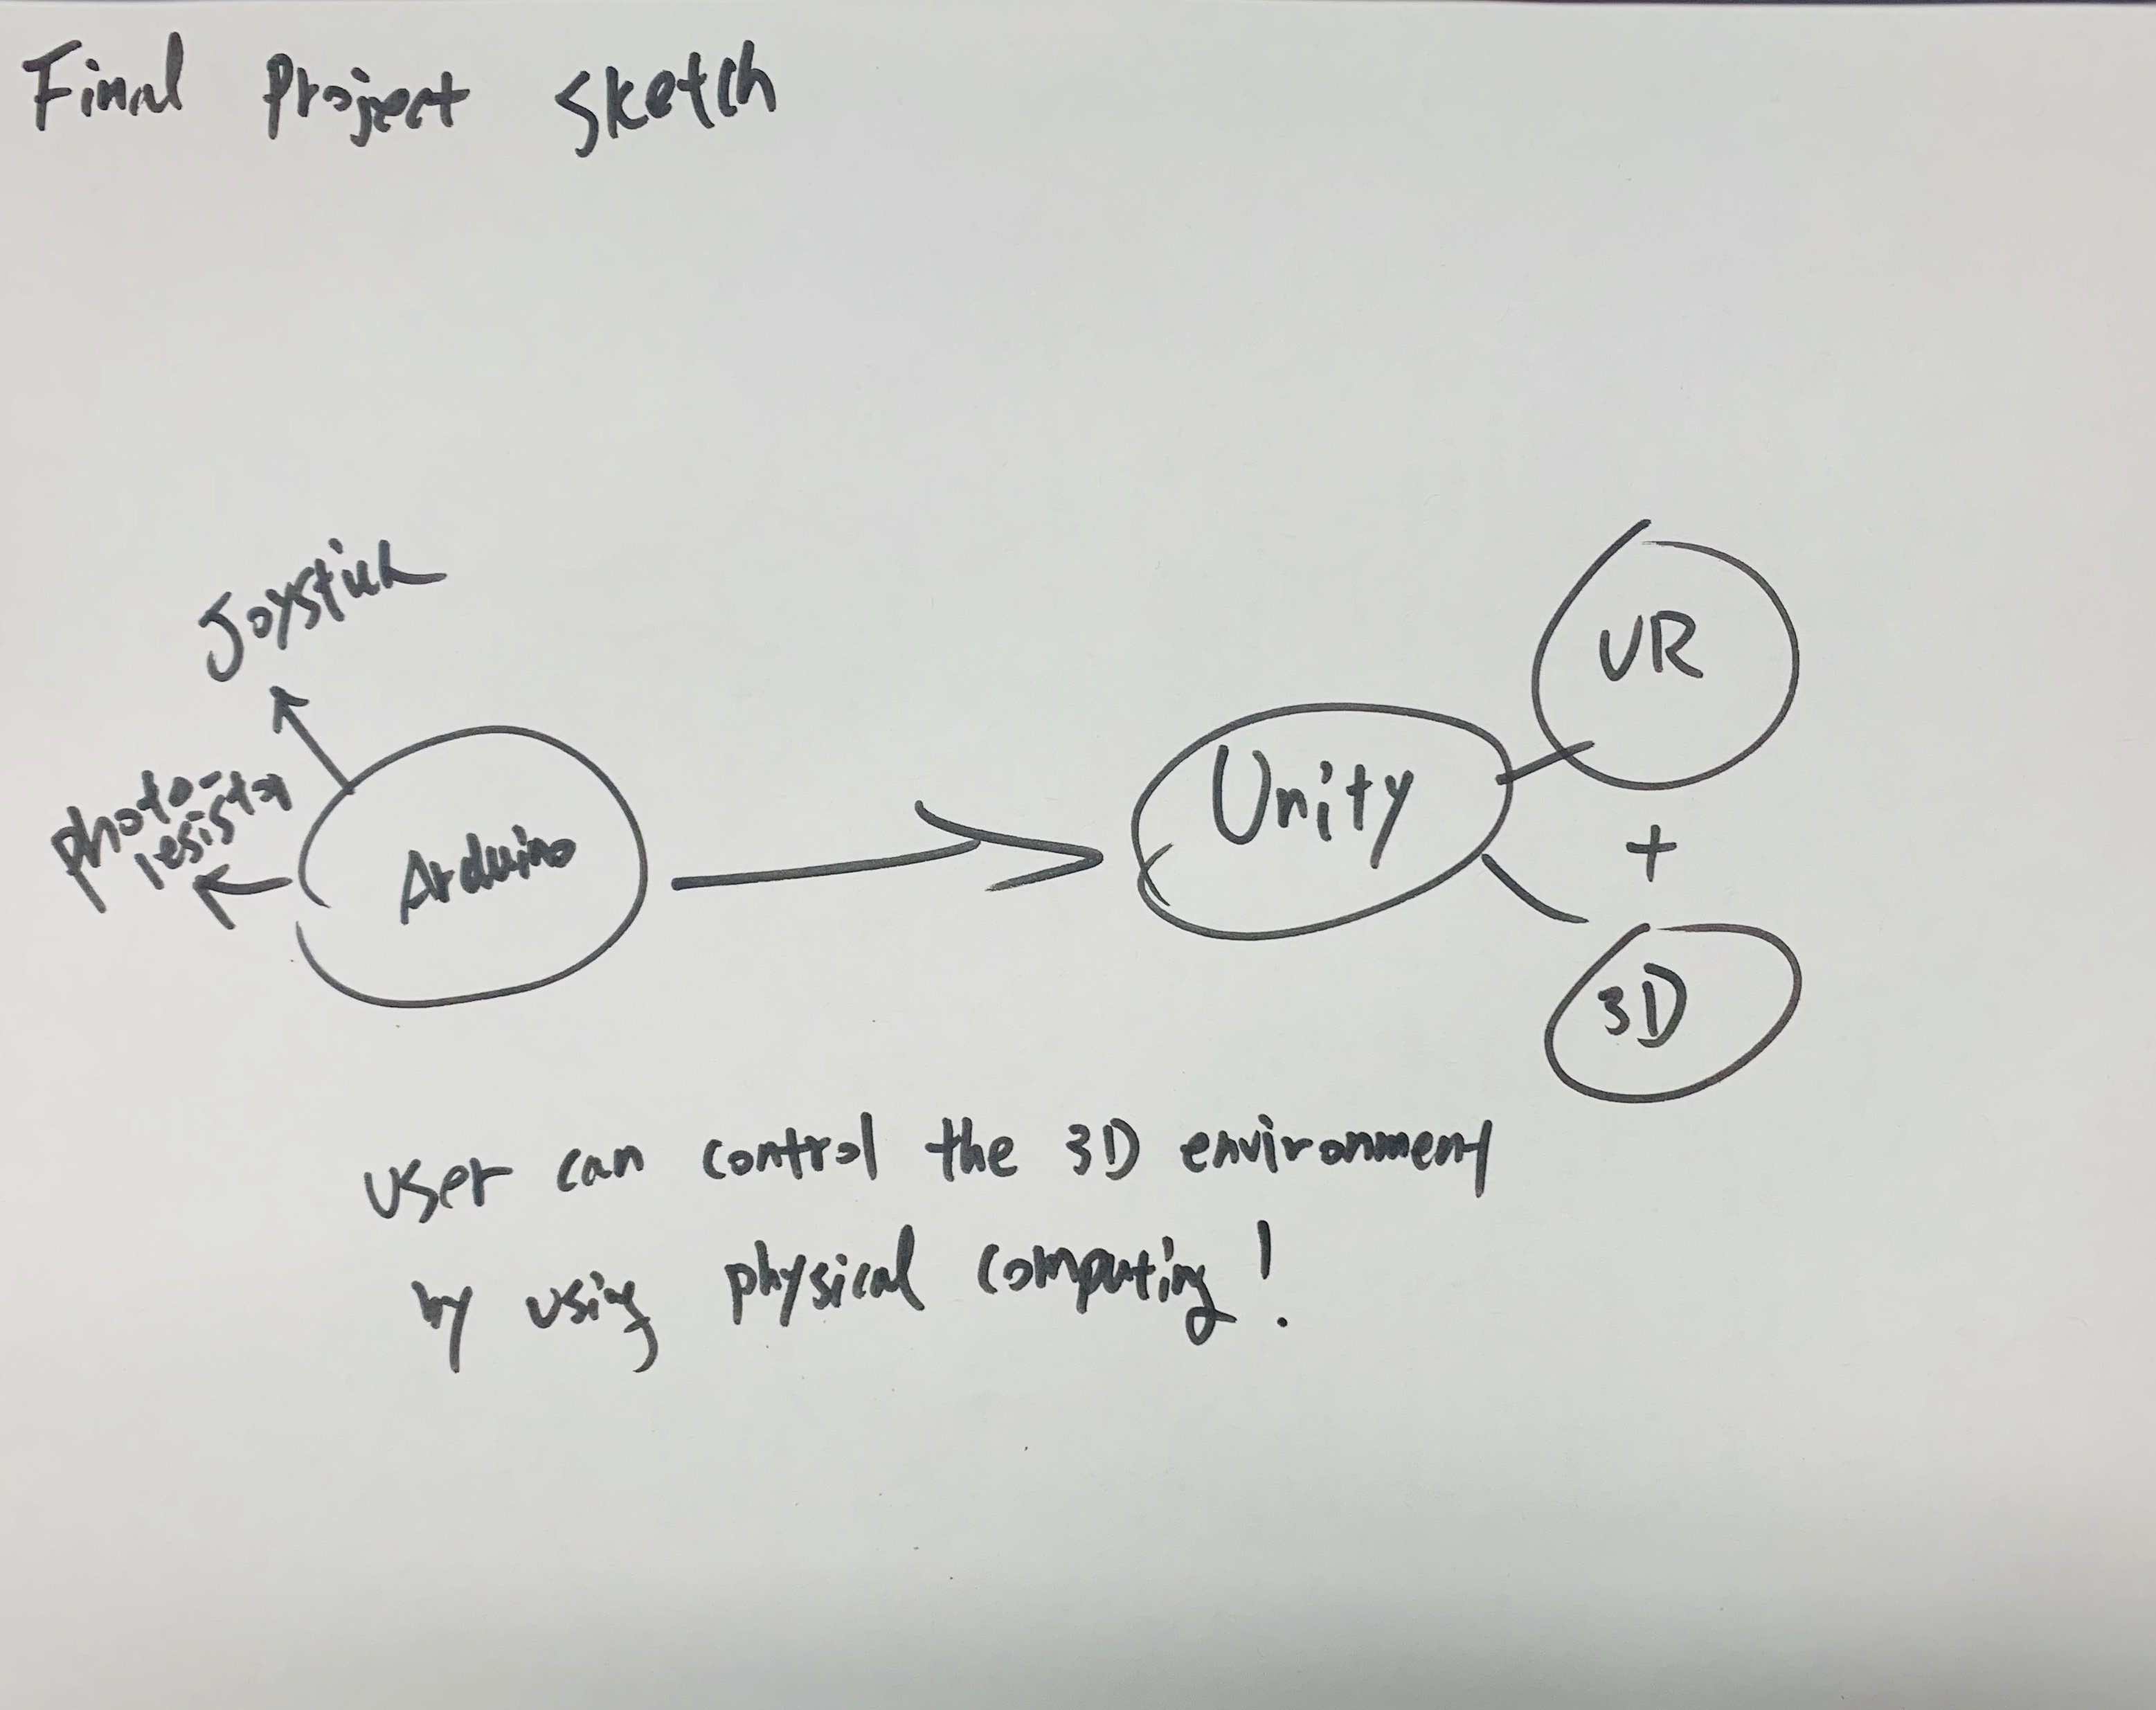 Final Project Sketch
Joystick
photo-
resistor
Arduino
Unity
VR
+
3D
User can control the 3D environment
by using physical computing!